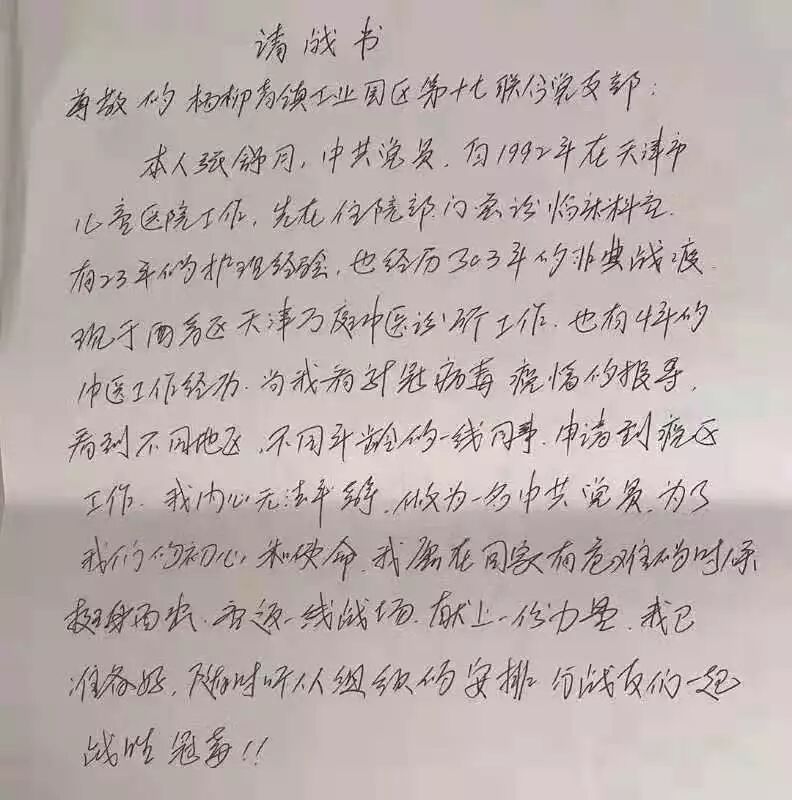 请战书
尊敬的杨柳青镇工业园区第十七联合党支部:
本人张舒月,中共党员,自1992年在天津市
儿童医院工作,先在住院部门急诊临床科室.
有23年的护理经验,也经历了03年的非典战疫.
现于西青区天津万庭中医诊所工作.也有4年的
中医工作经历.当我看到冠病毒疫情的报导,
看到不同地区,不同年龄的一线同事.申请到疫区
工作.我内心无法平静,做为一名中共党员,为了
我们的初心和使命,我愿在国家有危难的时候
挺身而出.重返一线战场.献上一份力量.我已
准备好,随时听从组织的安排 与战友们一起
战胜冠毒!!